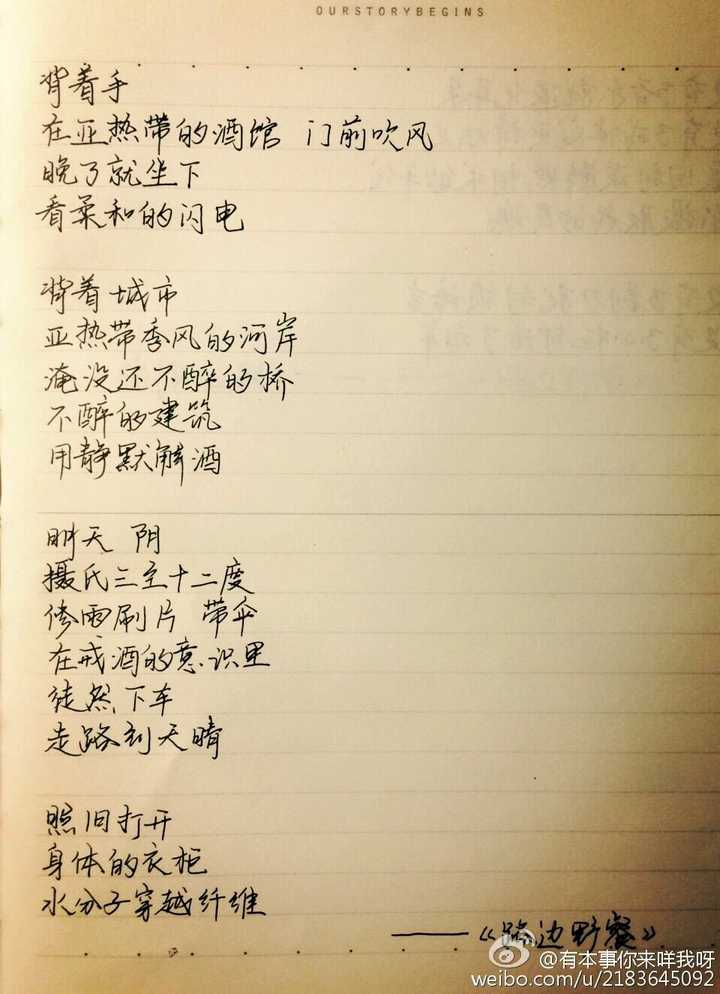 OURSTORYBEGINS
背着手
在亚热带的酒馆 门前吹风
晚了就坐下
看柔和的闪电
背着城市
亚热带季风的河岸
淹没还不醉的桥
不醉的建筑
用静默解酒
明天 阴
摄氏三至十二度
修雨刷片 带伞
在戒酒的意识里
徒然下车
走路到天晴
照旧打开
身体的衣柜
水分子穿越纤维
——《路边野餐》
@有本事你来咩我呀
weibo.com/u/2183645092